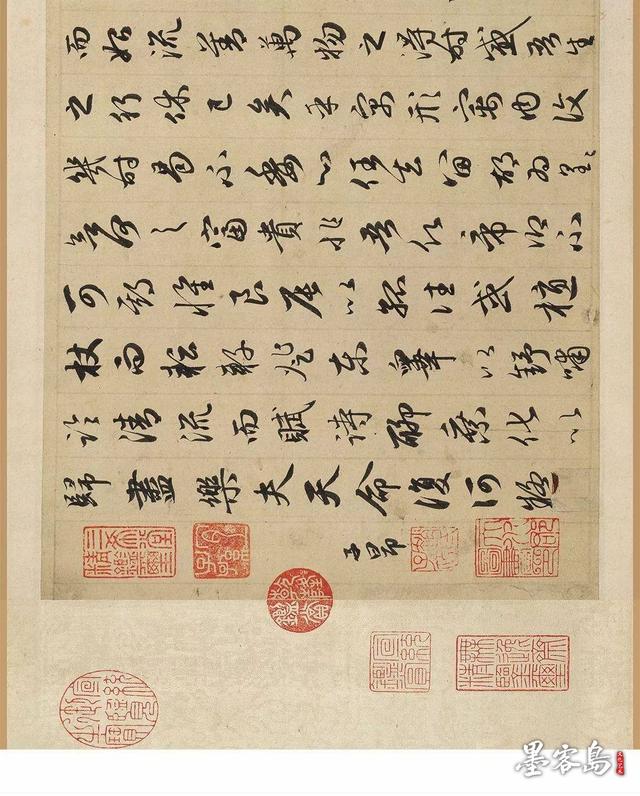 而始流善萬物之得時感吾生
之行休已矣乎寓形寓内復
幾時曷不委心任去留胡為遑遑
欲何之富貴非吾願帝鄉不
可期懷良辰以孤往或植
杖而耘耔登東皋以舒嘯
臨清流而賦詩聊乘化以
歸盡樂夫天命復何疑
子昂
墨客岛